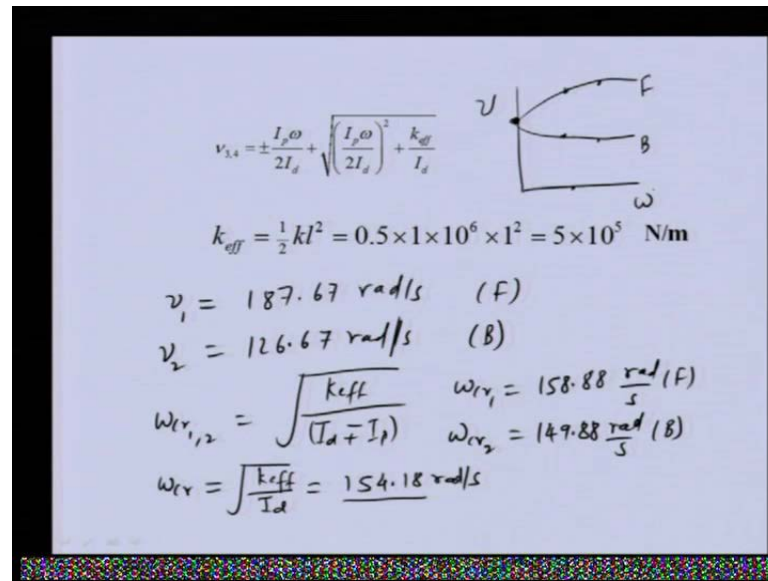 ν₃,₄ = ± Iₚω / 2I_d + √((Iₚω / 2I_d)² + k_eff / I_d)
ν F
B
ω
k_eff = ½ kl² = 0.5 × 1 × 10⁶ × 1² = 5 × 10⁵ N/m
ν₁ = 187.67 rad/s (F)
ν₂ = 126.67 rad/s (B)
ω_cr₁,₂ = √(k_eff / (I_d ∓ Iₚ)) ω_cr₁ = 158.88 rad/s (F)
ω_cr₂ = 149.88 rad/s (B)
ω_cr = √(k_eff / I_d) = 154.18 rad/s